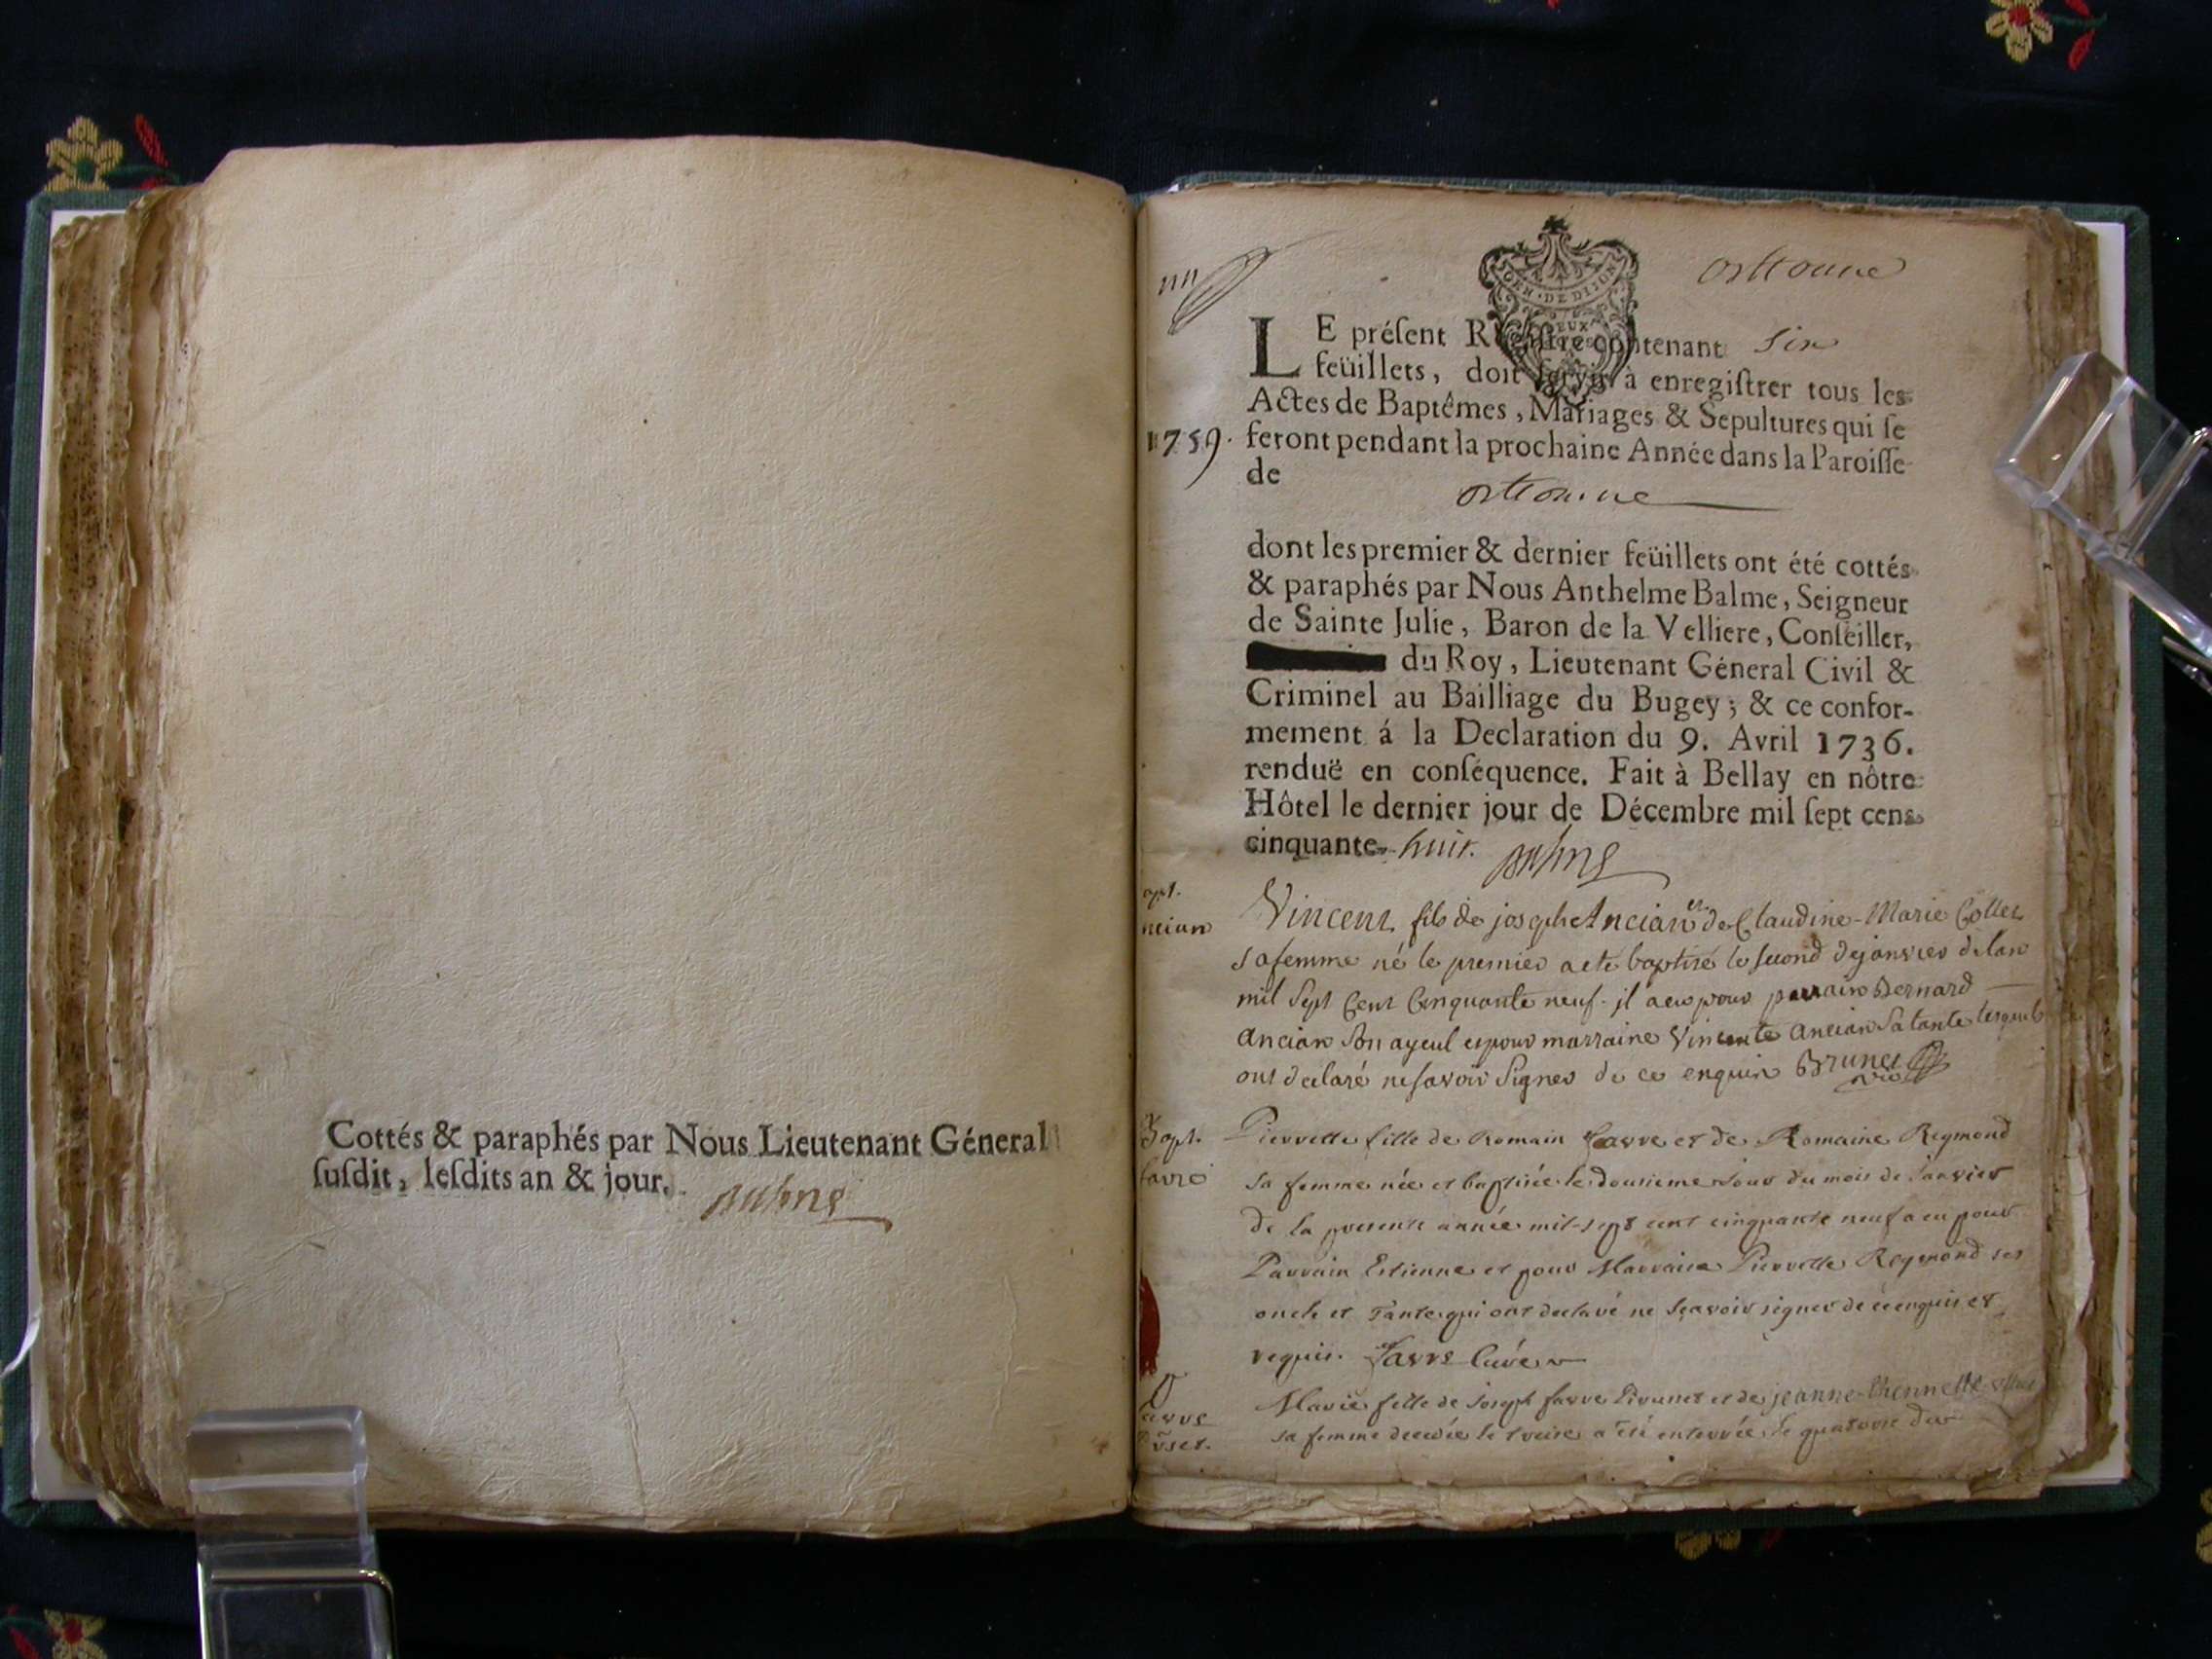 Cottés & paraphés par Nous Lieutenant Géneral
ſuſdit, leſdits an & jour.
GEN · DE DIJON
DEUX
LE préſent Regiſtre contenant six
feüillets, doit ſervir à enregiſtrer tous les
Actes de Baptêmes, Mariages & Sepultures qui ſe
1759.
feront pendant la prochaine Année dans la Paroiſſe
de
dont les premier & dernier feüillets ont été cottés
& paraphés par Nous Anthelme Balme, Seigneur
de Sainte Julie, Baron de la Velliere, Conſeiller,
du Roy, Lieutenant Géneral Civil &
Criminel au Bailliage du Bugey; & ce confor-
mement á la Declaration du 9. Avril 1736.
renduë en conſéquence. Fait à Bellay en nôtre
Hôtel le dernier jour de Décembre mil ſept cens
cinquante-huit.
Vincent fils de joseph Ancian et de Claudine-Marie Collet
sa femme né le premier a eté baptisé le second de janvier de lan
mil sept Cent Cinquante neuf. il a eu pour parrain Bernard
ancian son ayeul et pour marraine Vincente ancian sa tante lesquels
ont declaré ne savoir signer de ce enquis Brunet
Bapt.
favre
Pierrette fille de Romain favre et de Romaine Reymond
sa femme née et baptisée le dousieme jour du mois de Janvier
de la presente année mil-sept cent cinquante neuf a eu pour
Parrain Estienne et pour Marraine Pierrette Reymond ses
oncle et Tante qui ont declaré ne sçavoir signer de ce enquis et
requis. favre Curé
Marie fille de Joseph favre et de jeanne-thennette
sa femme decedée le treise a été enterrée le quatorse du